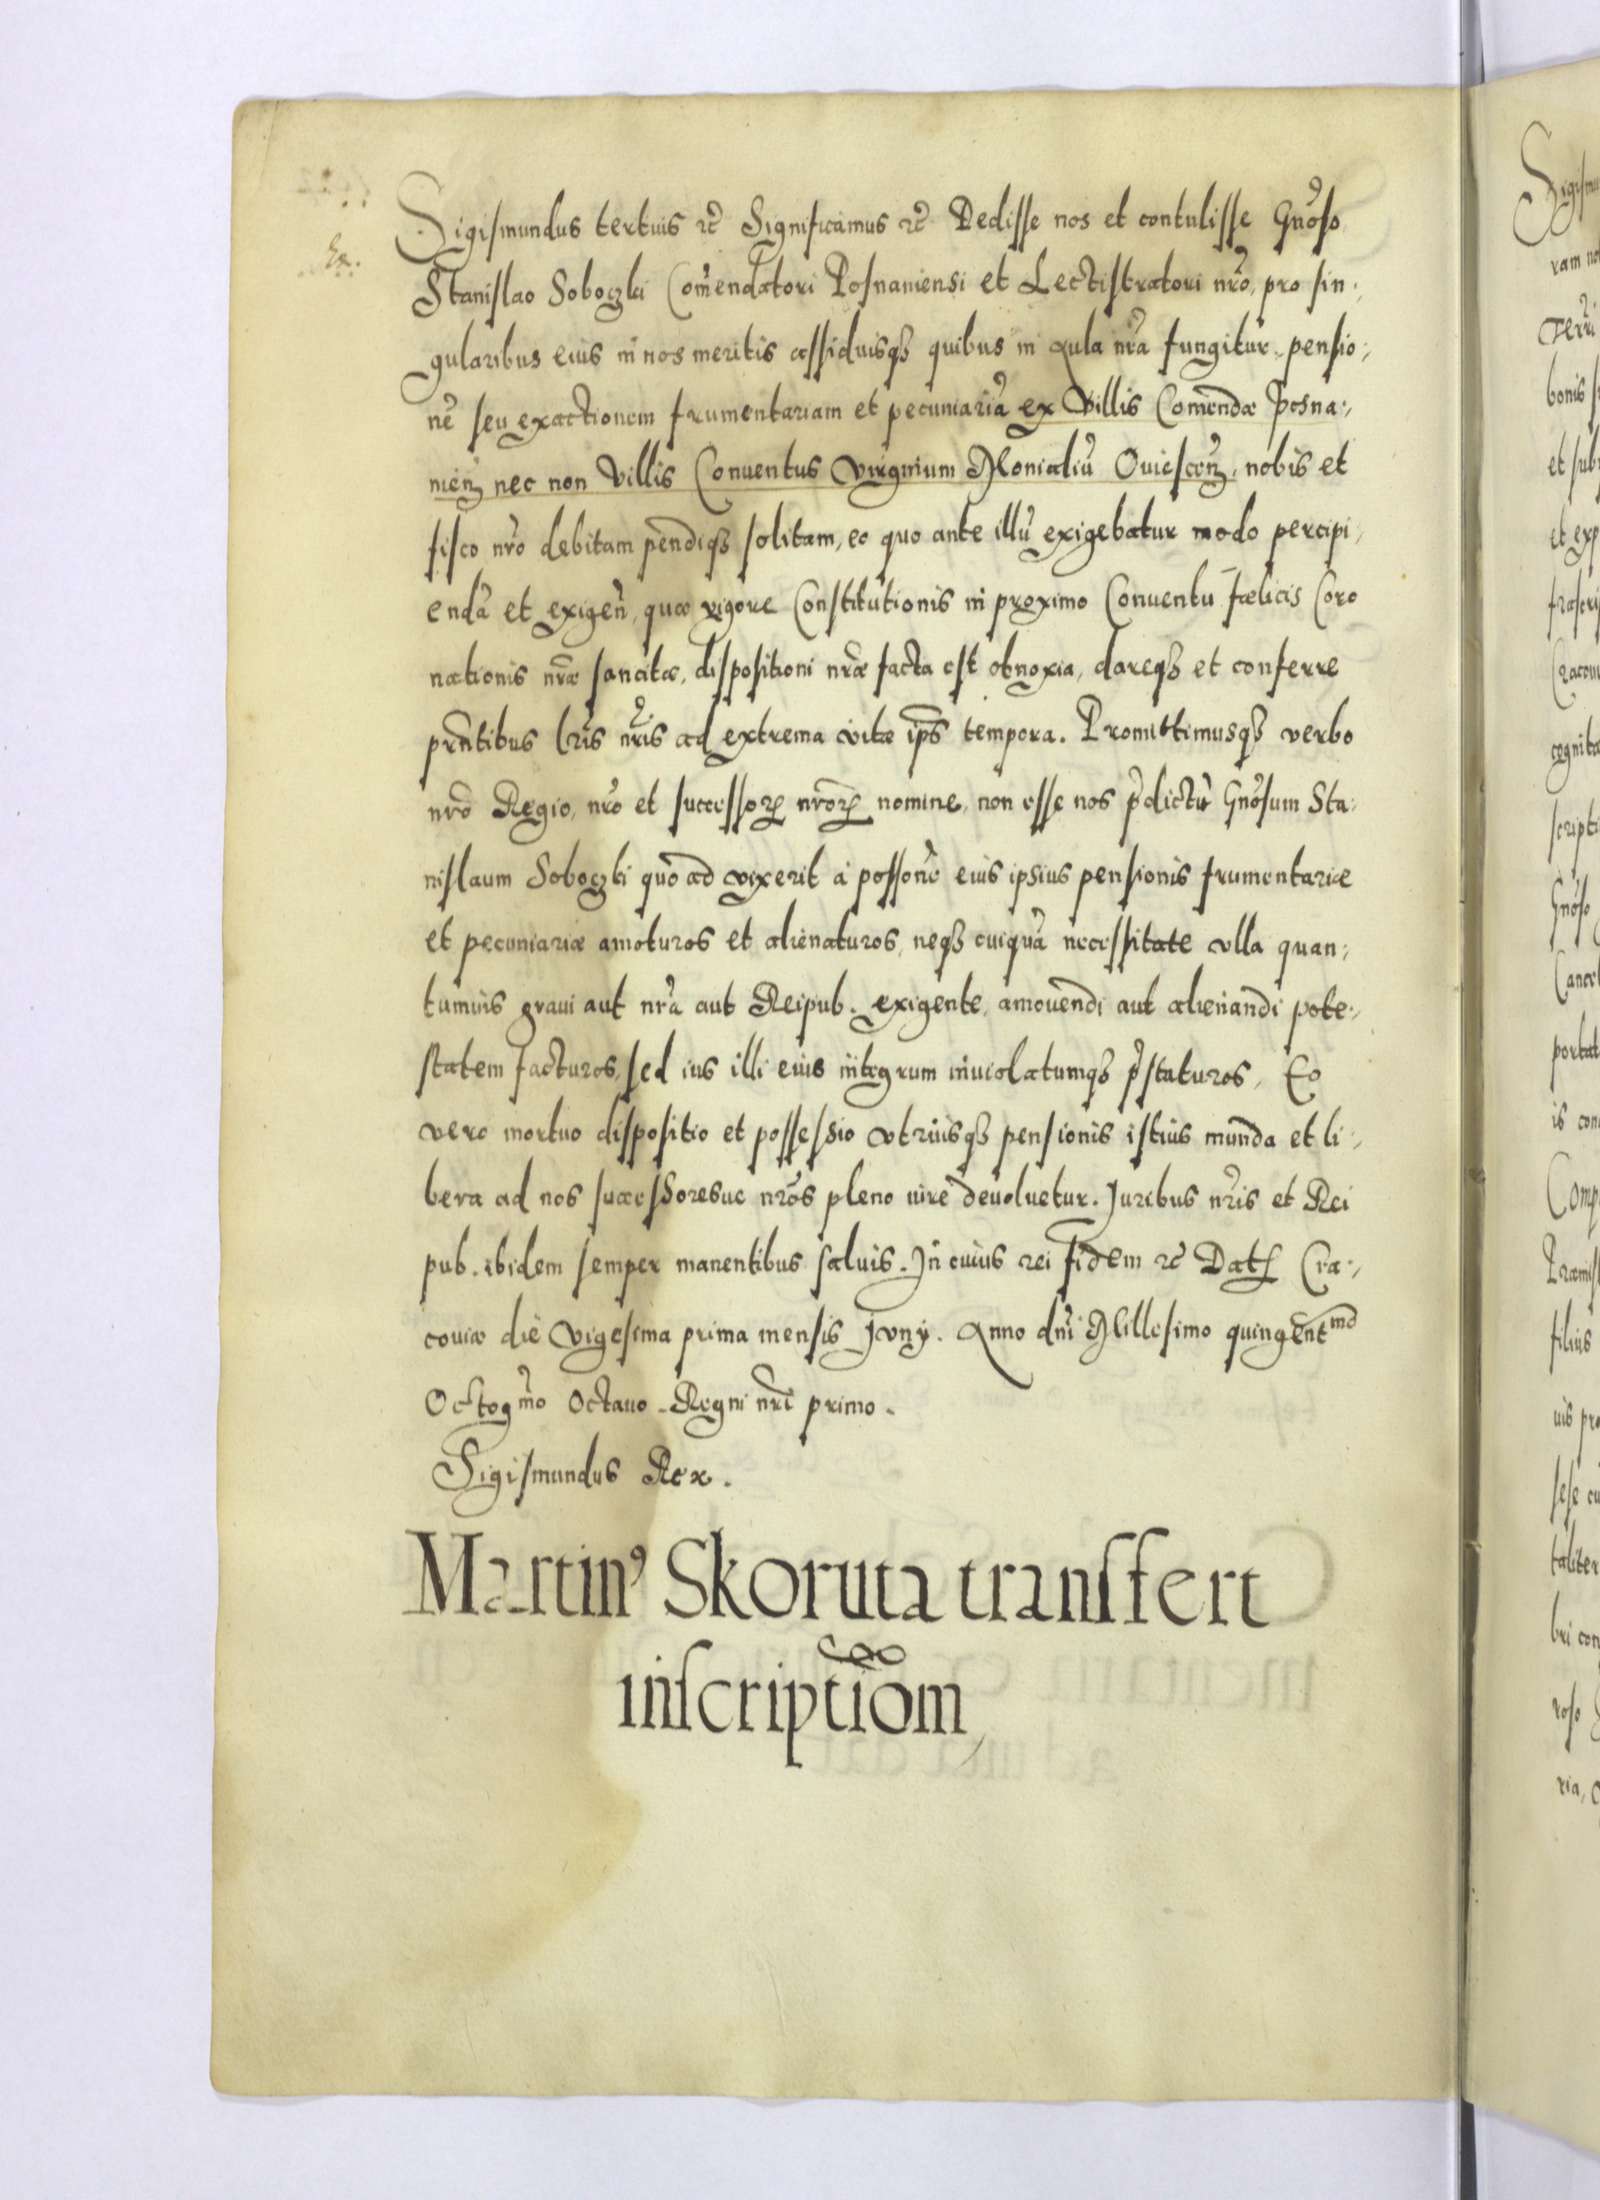 Ex.
Sigismundus tertius rc̃ Significamus rc̃ Dedisse nos et contulisse Gnõso
Stanislao Soboczki Com̃endatori Posnaniensi et Lectistratori nr̃o, pro sin-
gularibus eius in nos meritis assiduisqȝ quibus in Aula nr̃a fungitur, pensio-
nẽ seu exactionem frumentariam et pecuniariã ex Villis Com̃endæ Posna-
nieñ nec non Villis Conuentus Virginum Monialiũ Ouiesceñ, nobis et
fisco nr̃o debitam pendiqȝ solitam, eo quo ante illũ exigebatur modo percipi
endã et exigeñ, quæ vigore Constitutionis in proximo Conuentu fælicis Coro
nationis nr̃æ sancitæ, dispositioni nr̃æ facta est obnoxia, dareqȝ et conferre
pr̃ntibus lr̃is nr̃is ad extrema vitæ ip̃s tempora. Promittimusqȝ verbo
nr̃o Regio, nr̃o et successorꝝ nr̃orꝝ nomine, non esse nos p̃dictũ Gnõsum Sta-
nislaum Soboczki quoad vixerit à possoñe eius ipsius pensionis frumentariæ
et pecuniariæ amoturos et alienaturos, neqȝ cuiquã necessitate vlla quan-
tumuis graui aut nr̃a aut Reipub. exigente, amouendi aut alienandi pote-
statem facturos, sed ius illi eius integrum inuiolatumqȝ p̃staturos, Eo
vero mortuo dispositio et possessio vtriusqȝ pensionis istius munda et li-
bera ad nos successoresue nr̃os pleno iure deuoluetur. Juribus nr̃is et Rei
pub. ibidem semper manentibus saluis. In cuius rei fidem rc̃ Dat Cra-
couiæ die Vigesima prima mensis Juny. Anno dñi Millesimo quingentmo
Octogmo Octauo. Regni nr̃i primo.
Sigismundus Rex.
Martin⁹ Skoruta transfert
inscriptiõm